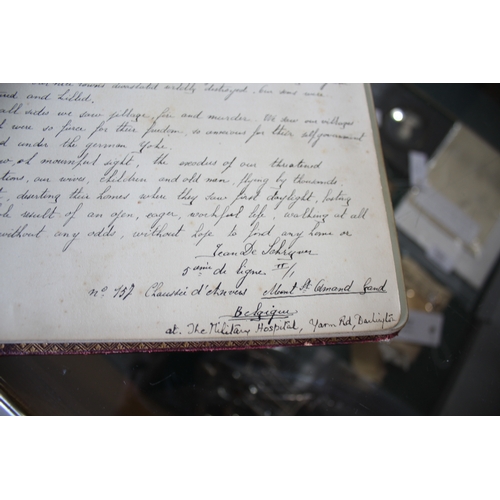 our nice towns devastated wildly destroyed, our sons were
and killed.
all sides we saw pillage, fire and murder. We saw our villages
were so fierce for their freedom, so anxious for their self government
under the german Yoke.
mournful sight, the exodies of our threatened
our wives, children and old men, flying by thousands
deserting their homes where they saw first daylight, losing
result of an open, eager, workful life, walking at all
without any odds, without hope to find any home or
Jean De
5 ième de ligne II/1
n° 157 Chaussée d'Anvers Mont St Amand Gand
Belgique
at. The Military Hospital, Yarm Rd, Darlington